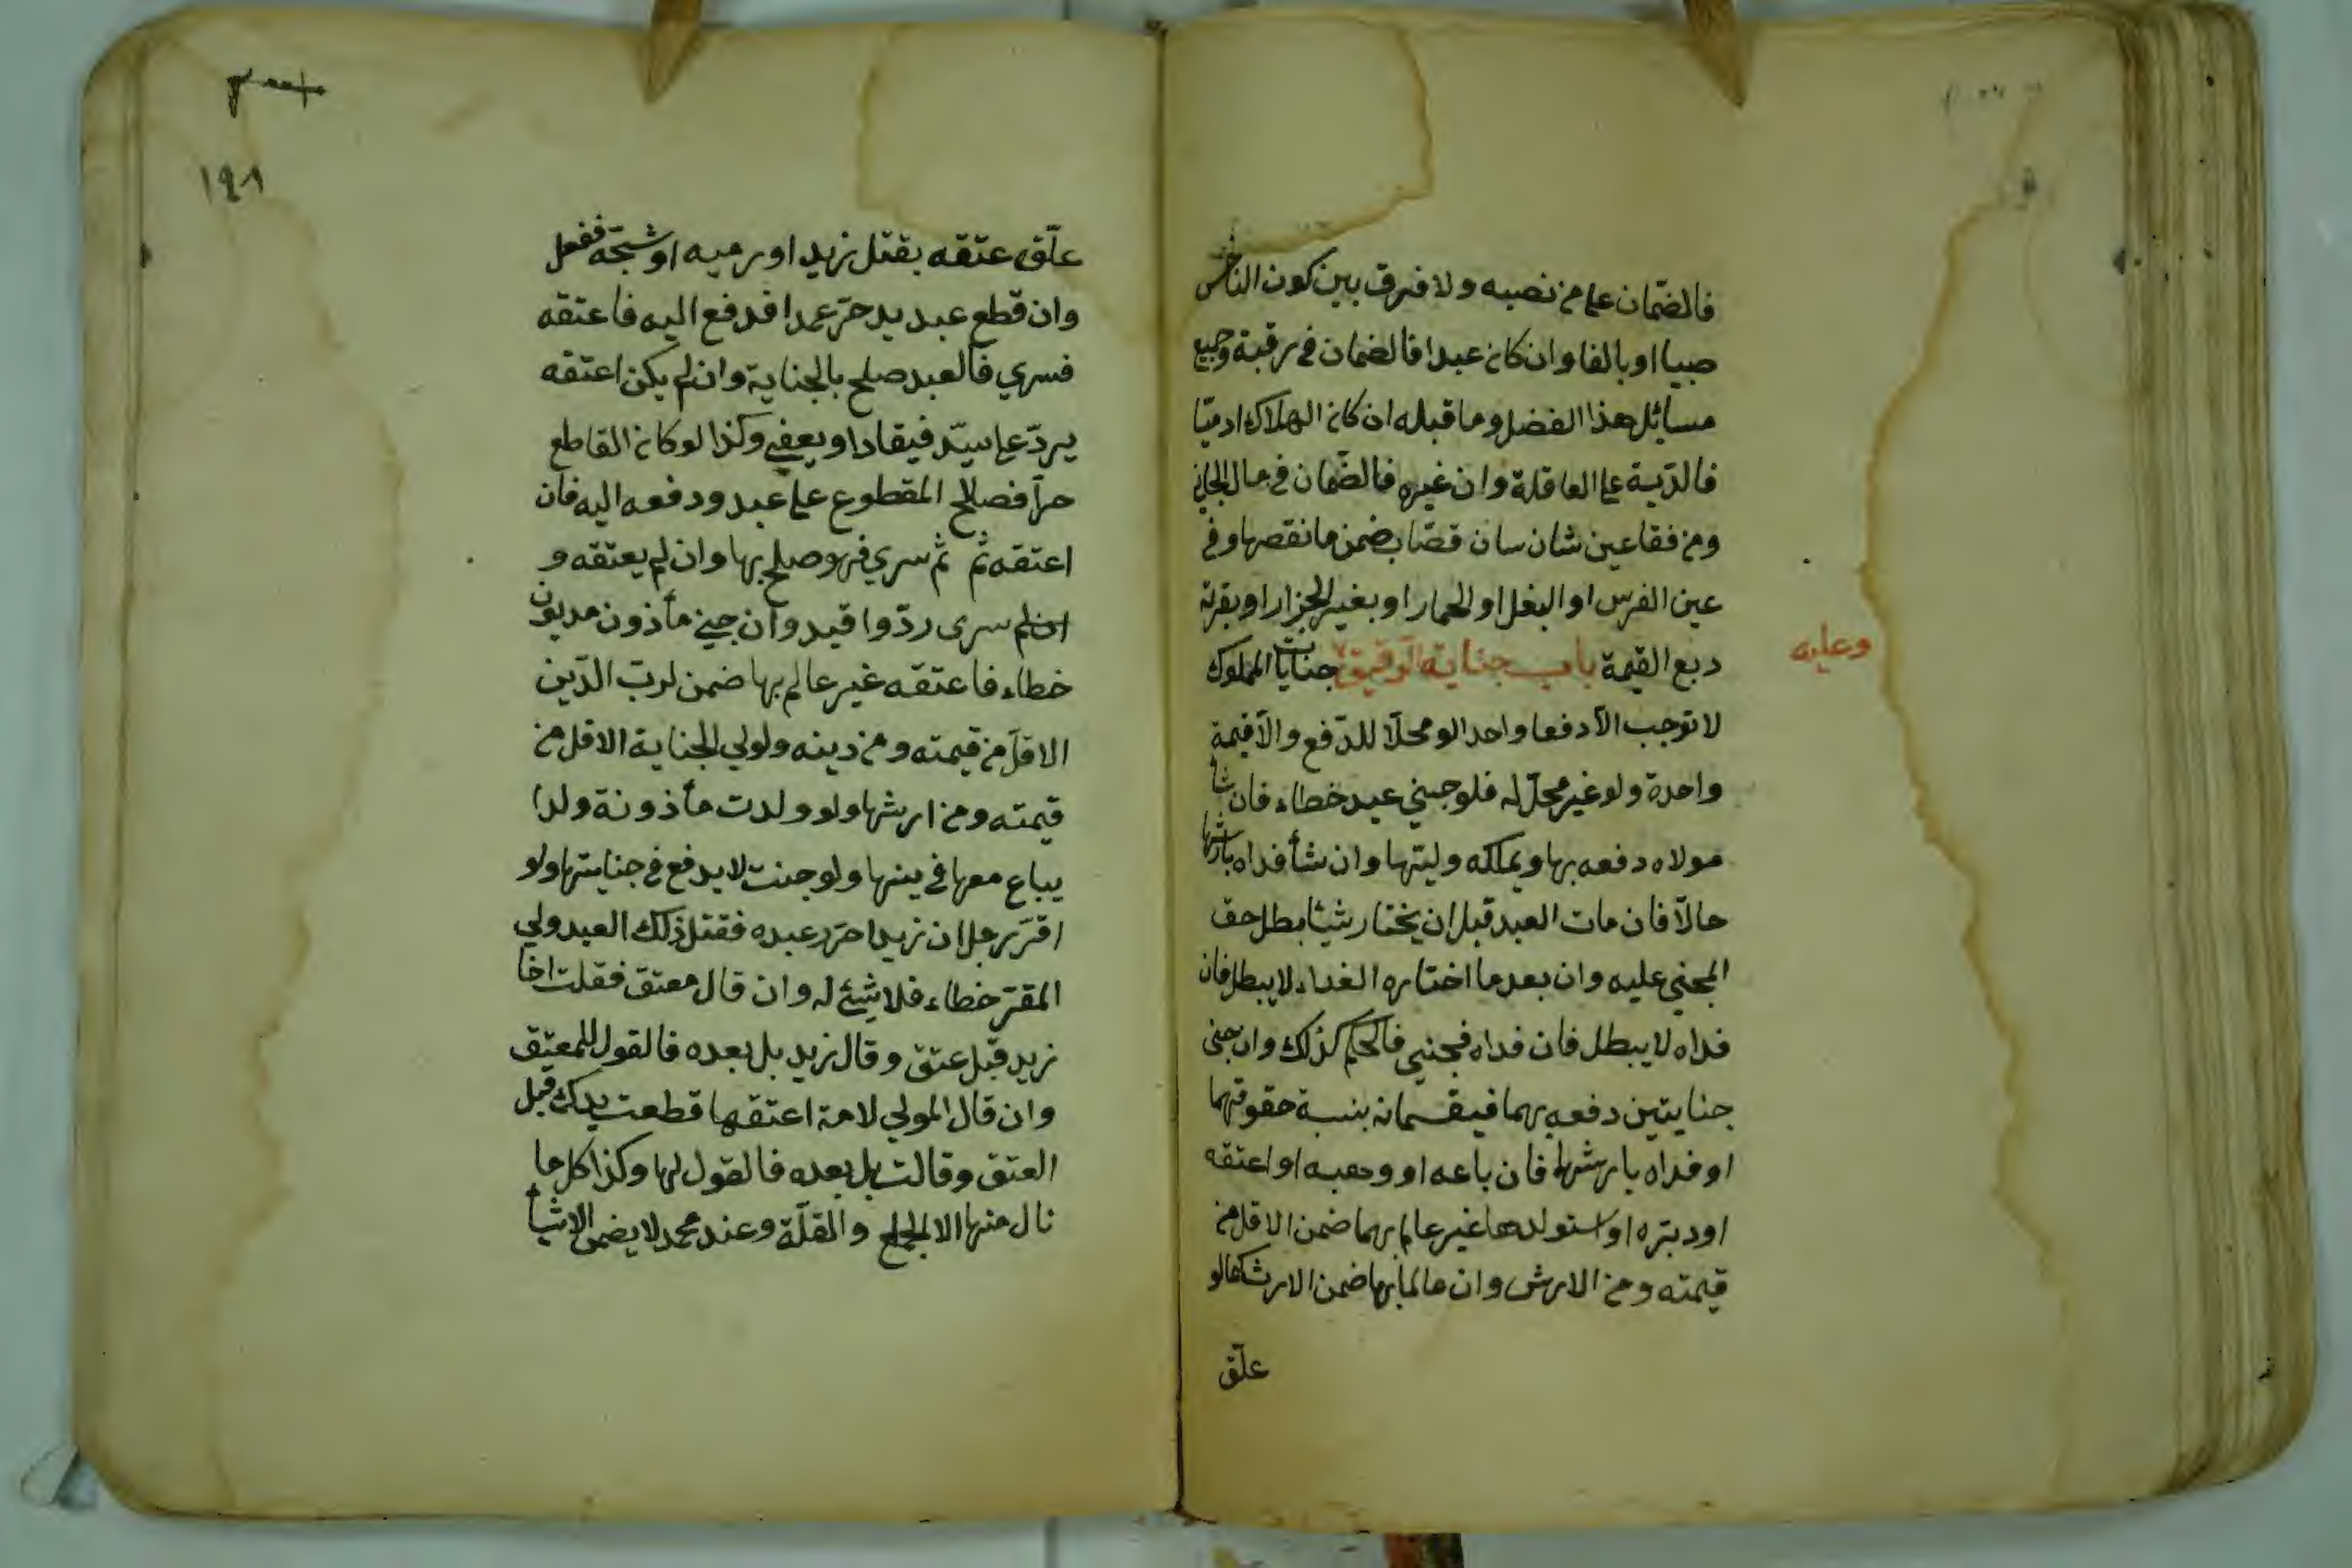 فالضمان على من نصبه ولا فرق بين كون الناخس
صبيا او بالغا وان كان عبدا فالضمان في رقبته وجميع
مسائل هذا الفضل وما قبله ان كان الهلاك ادميّا
فالدّية على العاقلة وان غيره فالضّمان في مال الجاني
ومن فقا عين شان سان قصّاب ضمن ما نقصها وفي
عين الفرس او البغل او الحمار او بغير الجزار او بقرته
ربع القيمة باب جناية الرقيق وعليه جنايات المملوك
لا توجب الّا دفعا واحدا لو محلّا للدّفع والّا قيمة
واحدة ولو غير محلّ له فلو جني عبد خطاء فان شأ
مولاه دفعه بها ويملكه وليّها وان شأ فداه بارشها
حالّا فان مات العبد قبل ان يختار شيئا بطل حق
المجني عليه وان بعد ما اختاره الفداء لا يبطل فان
فداه لا يبطل فان فداه فجني فالحكم كذلك وان جنى
جنايتين دفعه بهما فيقسمانه بنسبة حقوقهما
او فداه بارشها فان باعه او وهبه او اعتقه
او دبّره او استولدها غير عالم بهما ضمن الاقل من
قيمته ومن الارش وان عالما بها ضمن الارش كما لو
علّق
١٩٨
علّق عتقه بقتل زيد او رميه او شجّه ففعل
وان قطع عبد يد حرّ عمدا فدفع اليه فاعتقه
فسري فالعبد صلح بالجناية وان لم يكن اعتقه
يردّ على سيّد فيقاد او يعفي وكذا لو كان القاطع
حرّا فصالح المقطوع على عبد ودفعه اليه فان
اعتقه ثم ثم سري فهو صلح بها وان لم يعتقه و
سرى ردّ واقيد وان جني مأذون مديون
خطاء فاعتقه غير عالم بها ضمن لرب الدّين
الاقلّ من قيمته ومن دينه ولولي الجناية الاقل من
قيمته ومن ارشها ولو ولدت مأذونة ولدا
يباع معها في ينها ولو جنت لا يدفع في جنايتها ولو
اقرّ رجل ان زيدا حرّر عبده فقتل ذلك العبد ولي
المقرّ خطاء فلا شيئ له وان قال معتق فقلت اخا
زيد قبل عتق وقال زيد بل بعده فالقول للمعتق
وان قال المولي لامة اعتقها قطعت يدك قبل
العتق وقالت بل بعده فالقول لها وكذا كل ما
نال منها الا الجماع والغلّة وعند محمد لا يضمن الا شيأ